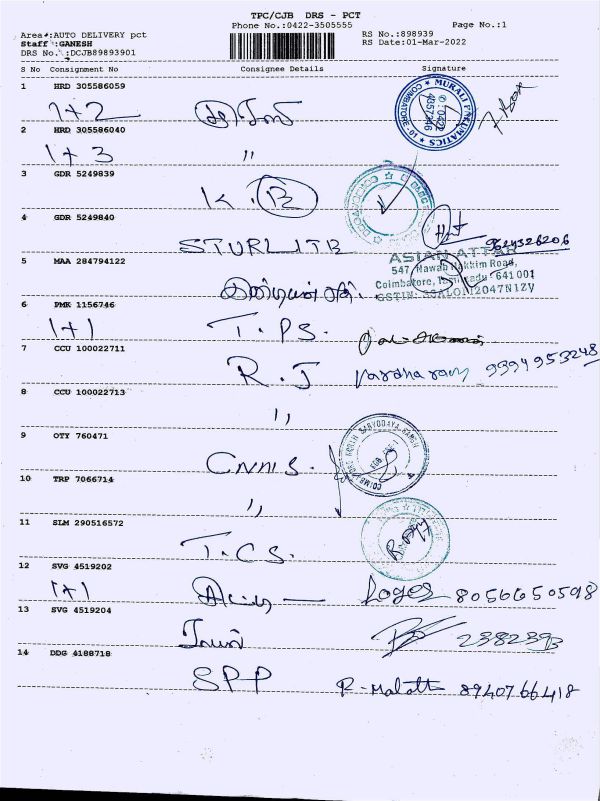 TPC/CJB DRS - PCT
Phone No.:0422-3505555 Page No.:1
Area :AUTO DELIVERY pct RS No.:898939
Staff :GANESH RS Date:01-Mar-2022
DRS No. :DCJB89893901
S No Consignment No Consignee Details Signature
1 HRD 305586059
1+2
MURALI PNEUMATICS COIMBATORE - 10 0422 4357746
2 HRD 305586040
1+3 "
3 GDR 5249839
K.B
4 GDR 5249840
STURLITE 9624326206
ASIAN ATTAR
547, Nawab Hakkim Road,
Coimbatore, Tamilnadu - 641 001
5 MAA 284794122
6 PMK 1156746
1+1 T.PS.
7 CCU 100022711
R.J Vardharaj 9394953248
8 CCU 100022713
"
9 OTY 760471
CNMS. SARVODAYA SANGH
10 TRP 7066714
"
11 SLM 290516572
T.C.S.
12 SVG 4519202
1+1 Loges 8056650598
13 SVG 4519204
2382393
14 DDG 4188718
SPP R-Malatt 8940766418